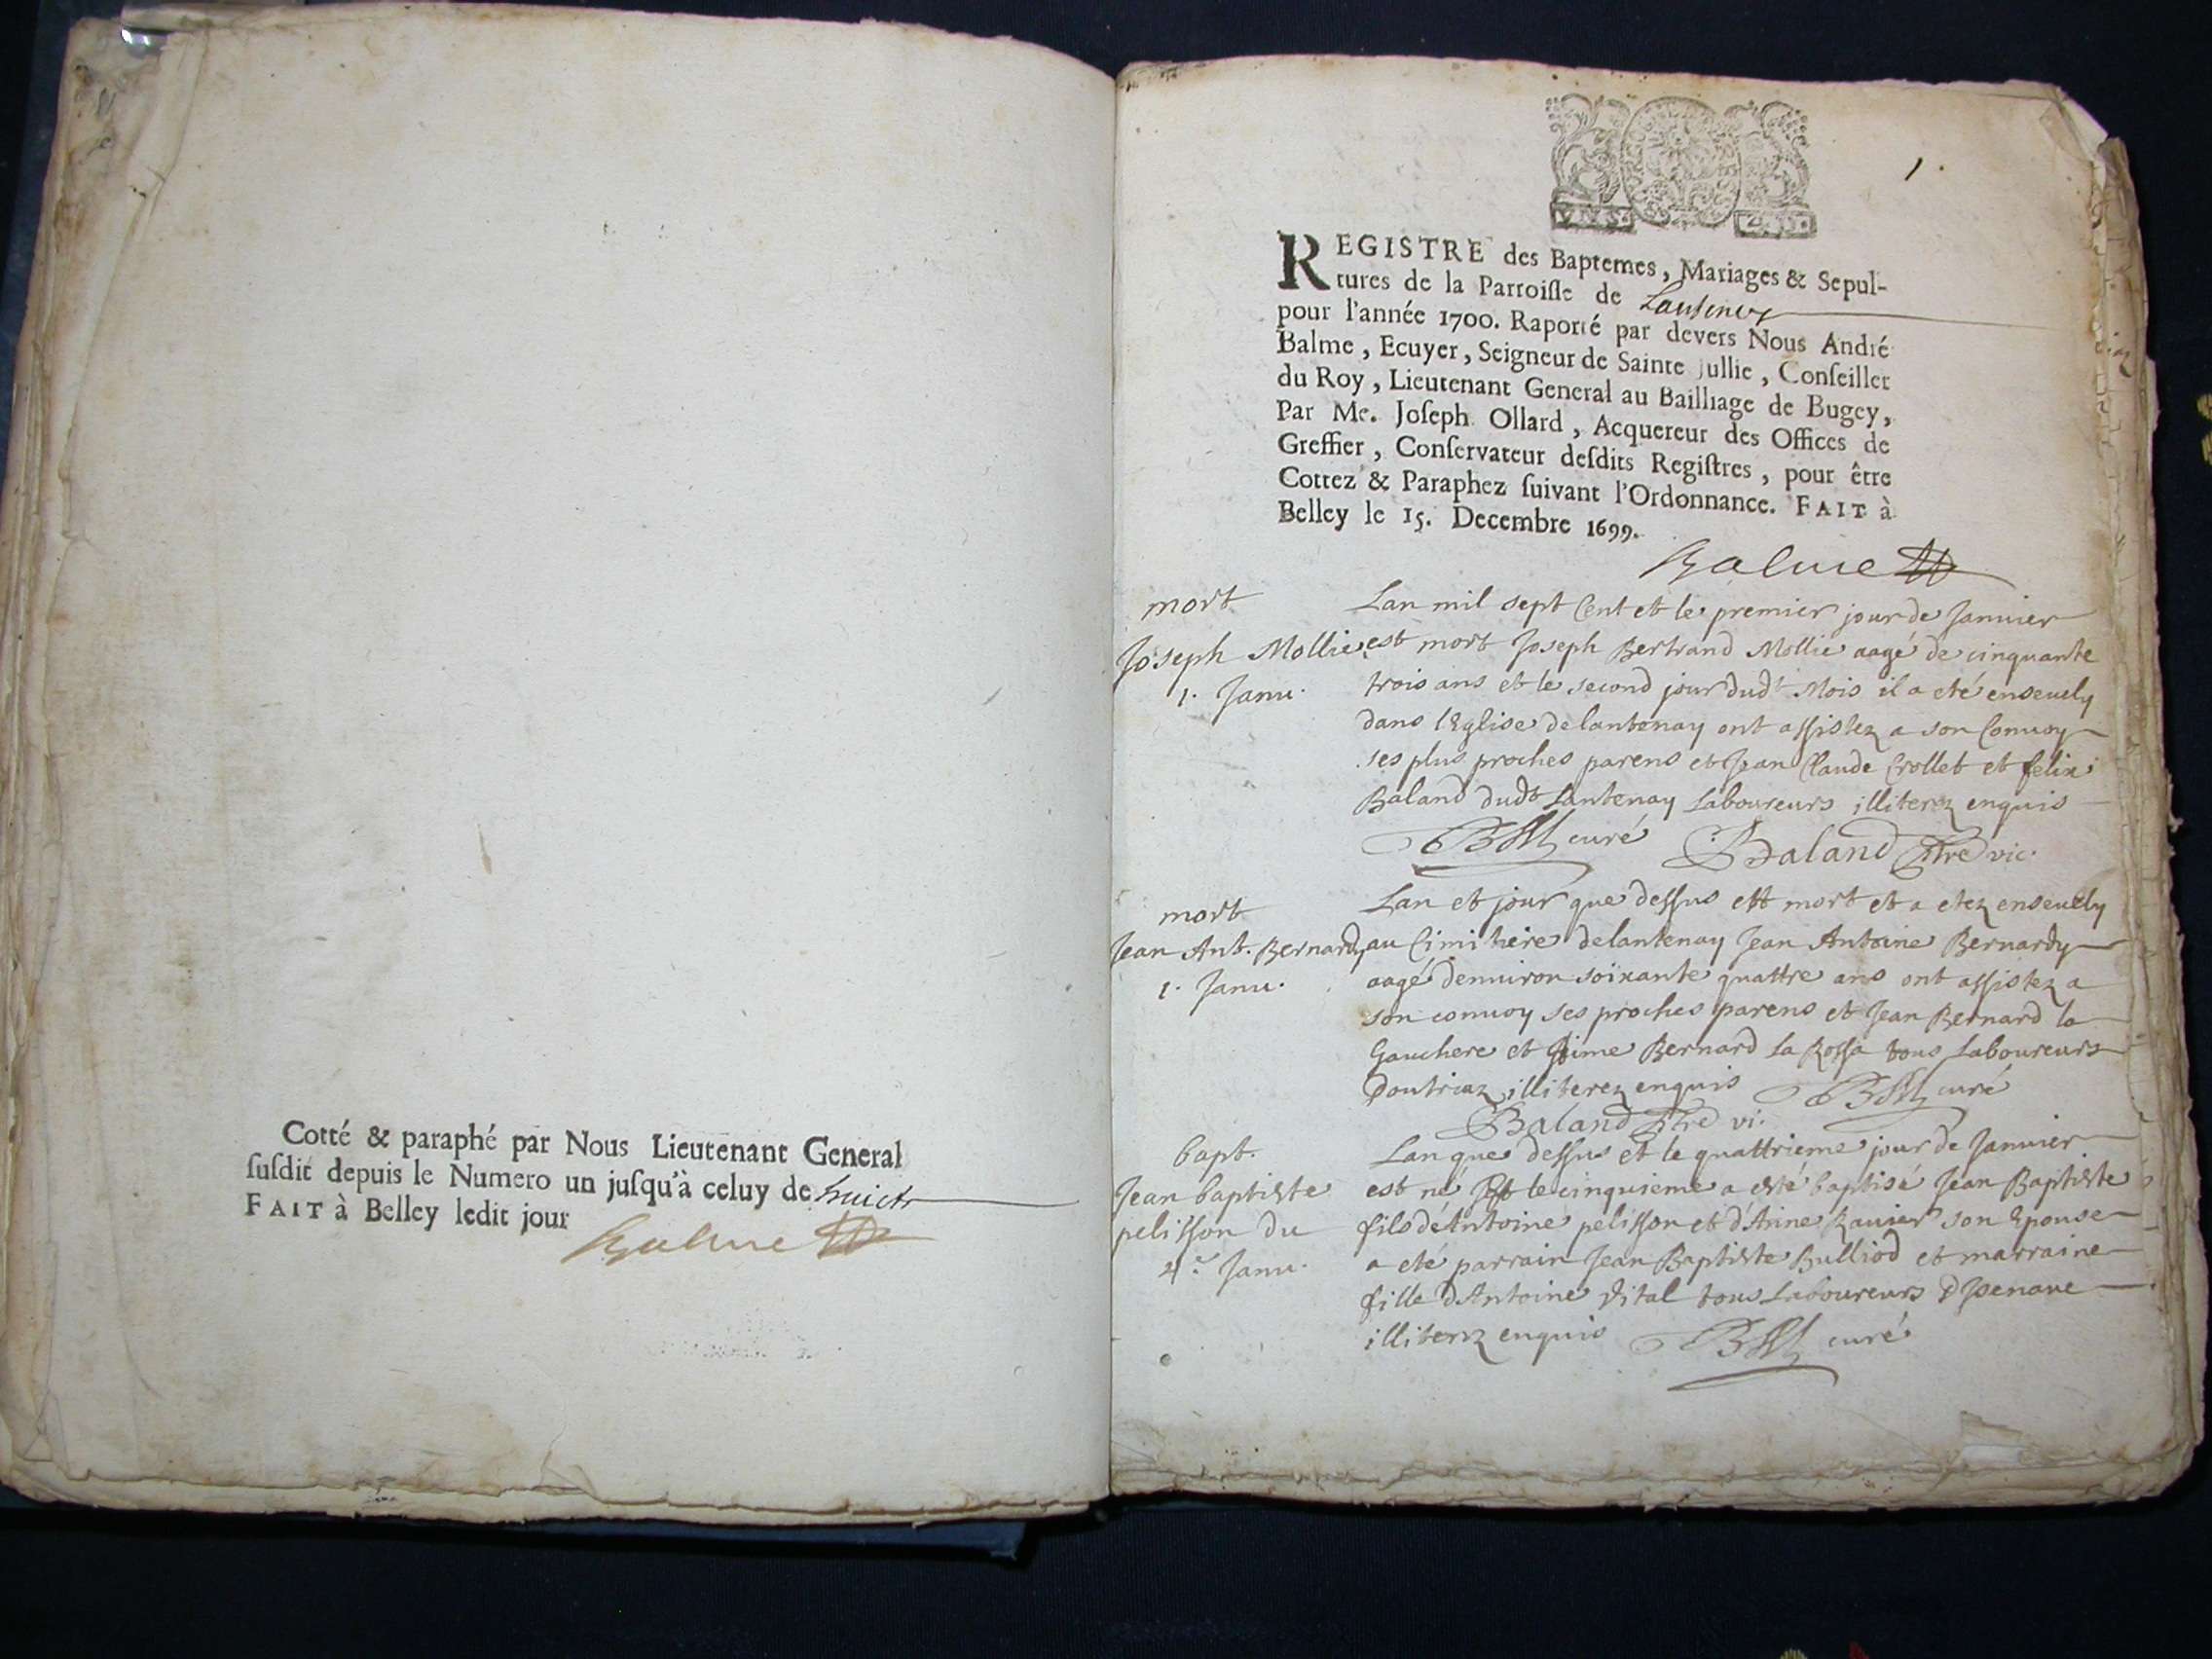 Cotté & paraphé par Nous Lieutenant General
suſdit depuis le Numero un juſqu'à celuy de huict
FAIT à Belley ledit jour
Balme
1.
REGISTRE des Baptemes, Mariages & Sepul-
tures de la Parroiſſe de Lantenay
pour l'année 1700. Raporté par devers Nous André
Balme, Ecuyer, Seigneur de Sainte Jullie, Conſeiller
du Roy, Lieutenant General au Bailliage de Bugey,
Par Me. Joſeph Ollard, Acquereur des Offices de
Greffier, Conſervateur deſdits Regiſtres, pour être
Cottez & Paraphez ſuivant l'Ordonnance. FAIT à
Belley le 15. Decembre 1699.
Balme
mort
Joseph Mollie
1. Janu.
Lan mil sept Cent et le premier jour de Januier
est mort Joseph Bertrand Mollie aagé de cinquante
trois ans et le second jour dudt Mois il a eté enseuely
dans l'Eglise de lantenay ont assistez a son Conuoy
ses plus proches parens et Jean Claude Crollet et felix
Baland dudt Lantenay Laboureurs illiterez enquis
curé Baland ptre vic.
mort
Jean Ant. Bernardy
1. Janu.
Lan et jour que dessus est mort et a etez enseuely
au Cimitiere de lantenay Jean Antoine Bernardy
aagé denuiron soixante quattre ans ont assistez a
son conuoy ses proches parens et Jean Bernard la
Gauchere et Bernard La Rossa tous Laboureurs
Doutriaz illiterez enquis curé
Baland ptre vi.
bapt.
Jean baptiste
pelisson du
4e Janu.
Lan que dessus et le quattrieme jour de Januier
est né et le cinquieme a esté baptisé Jean Baptiste
fils de Antoine pelisson et d'Anne Rauier son Epouse
a eté parrain Jean Baptiste Bulliod et marraine
fille d'Antoine Vital tous Laboureurs D Jzenaue
illiterez enquis curé